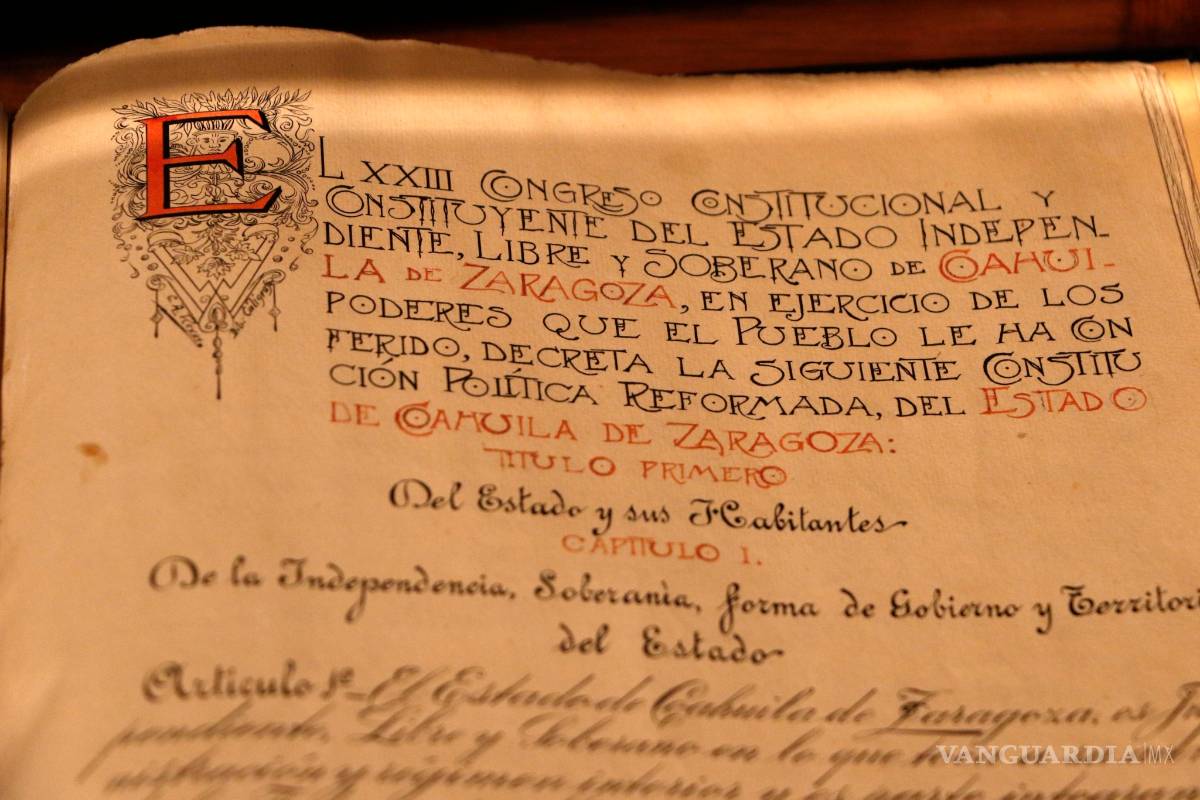 EL XXIII CONGRESO CONSTITUCIONAL Y
CONSTITUYENTE DEL ESTADO INDEPEN-
DIENTE, LIBRE Y SOBERANO DE COAHUI-
LA DE ZARAGOZA, EN EJERCICIO DE LOS
PODERES QUE EL PUEBLO LE HA CON
FERIDO, DECRETA LA SIGUIENTE CONSTITU
CIÓN POLÍTICA REFORMADA, DEL ESTADO
DE COAHUILA DE ZARAGOZA:
TITULO PRIMERO
Del Estado y sus Habitantes
CAPITULO I.
De la Independencia, Soberanìa, forma de Gobierno y Territori
del Estado
Articulo 1º El Estado de Cohuila de Zaragoza, es
pendiente, Libre y Soberano en lo que
nistración y regimen interior y es parte
VANGUARDIA|MX